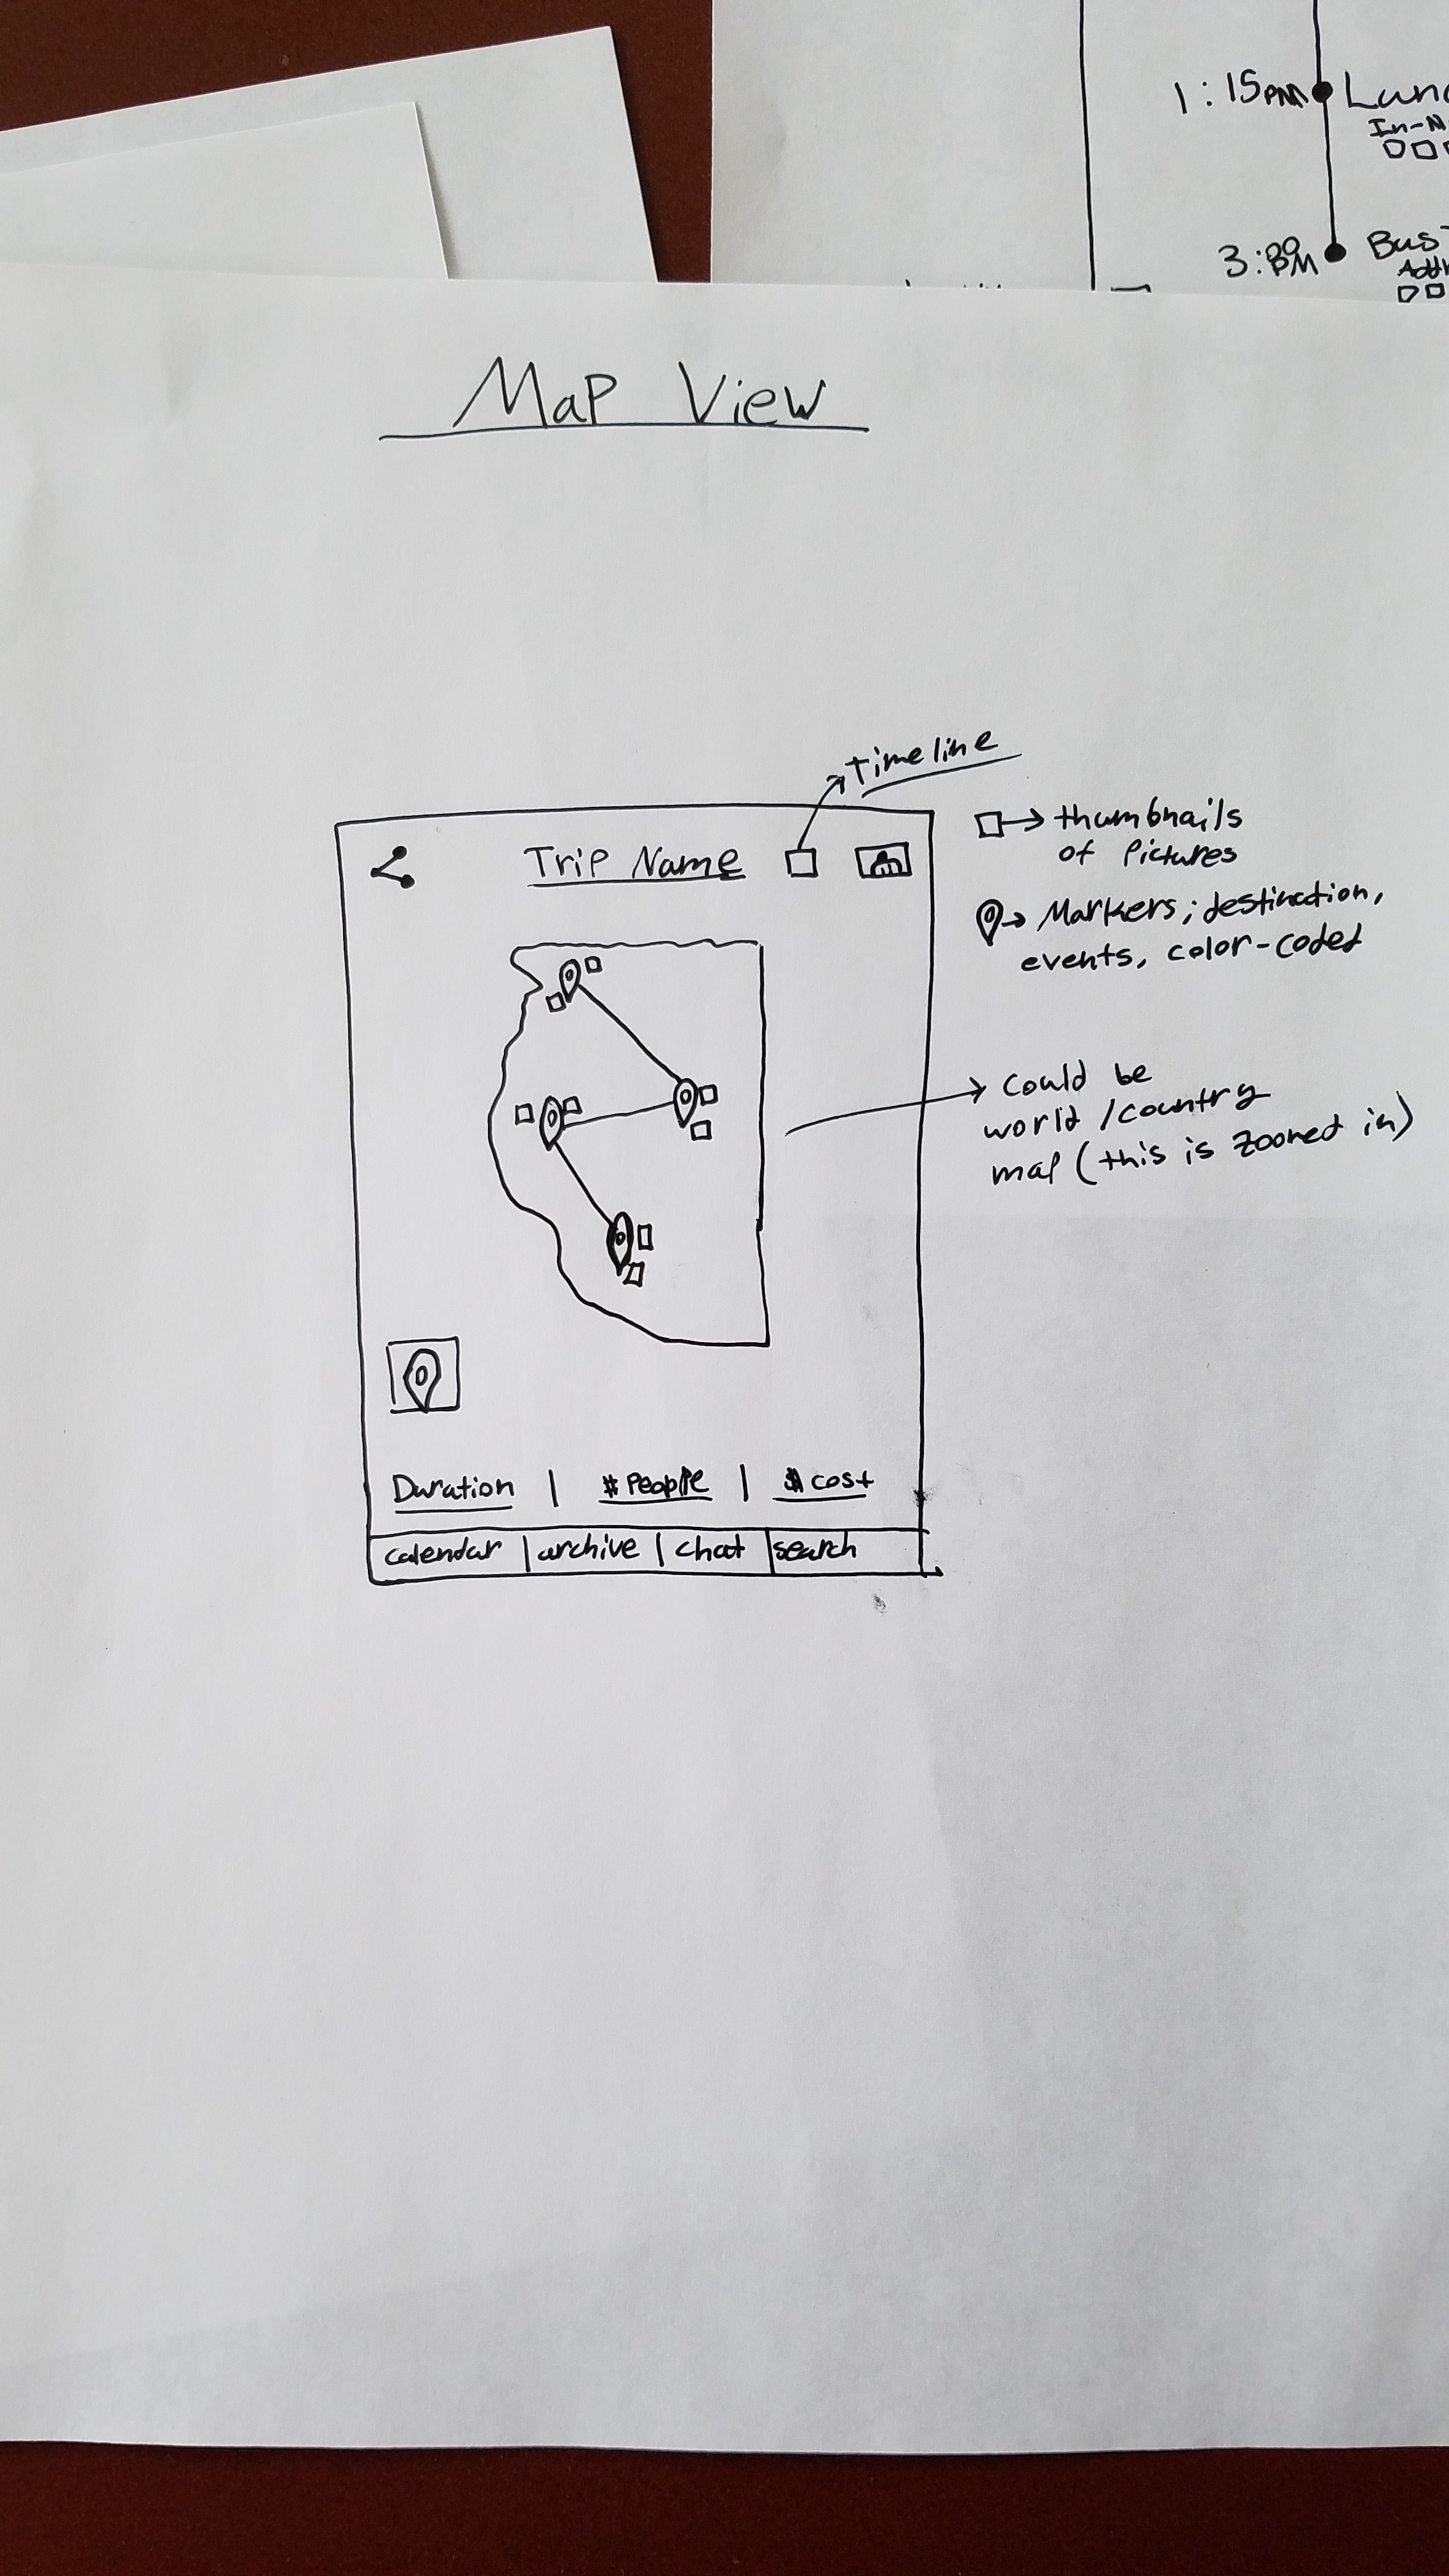 1:15PM
In-N
3:
Map View
timeline
Trip Name
thumbnails
of pictures
Markers; destination,
events, color-coded
could be
world/country
map (this is zoomed in)
Duration | # People | $ cost
calendar | archive | chat | search